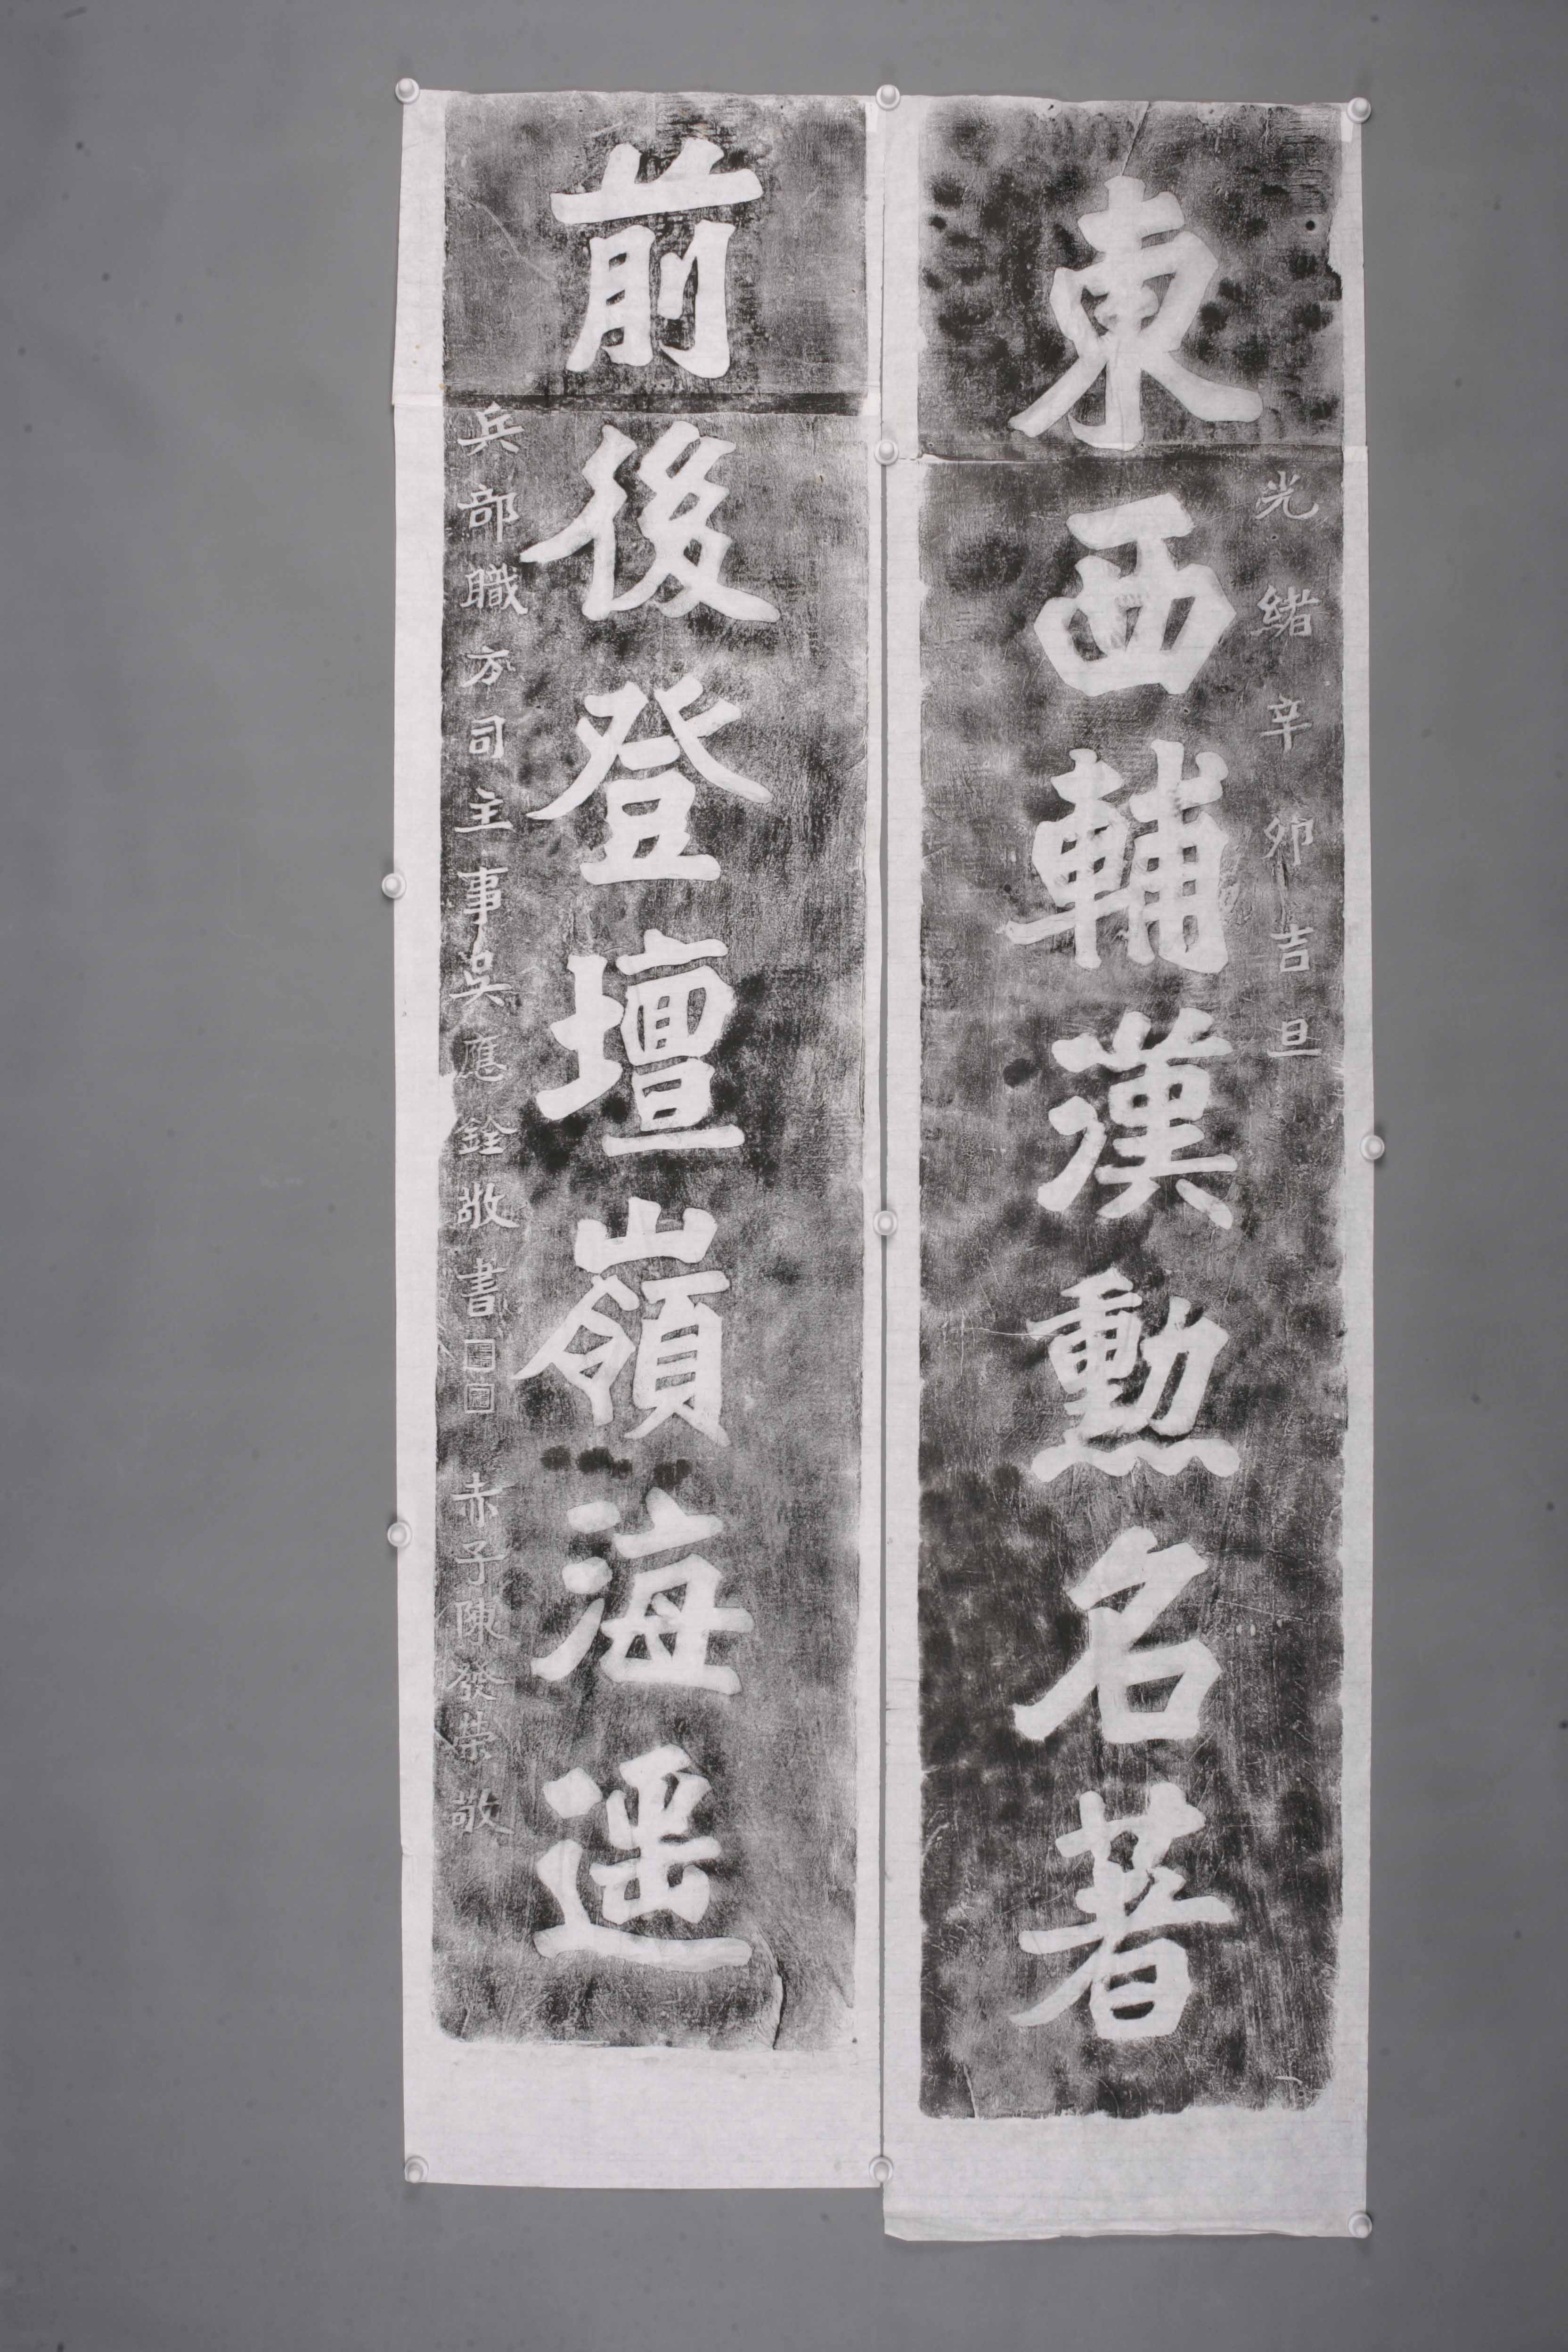 光緒辛卯吉旦
東西輔漢勳名著
前後登壇嶺海遥
兵部職方司主事吳應銓敬書
赤子陳發榮敬